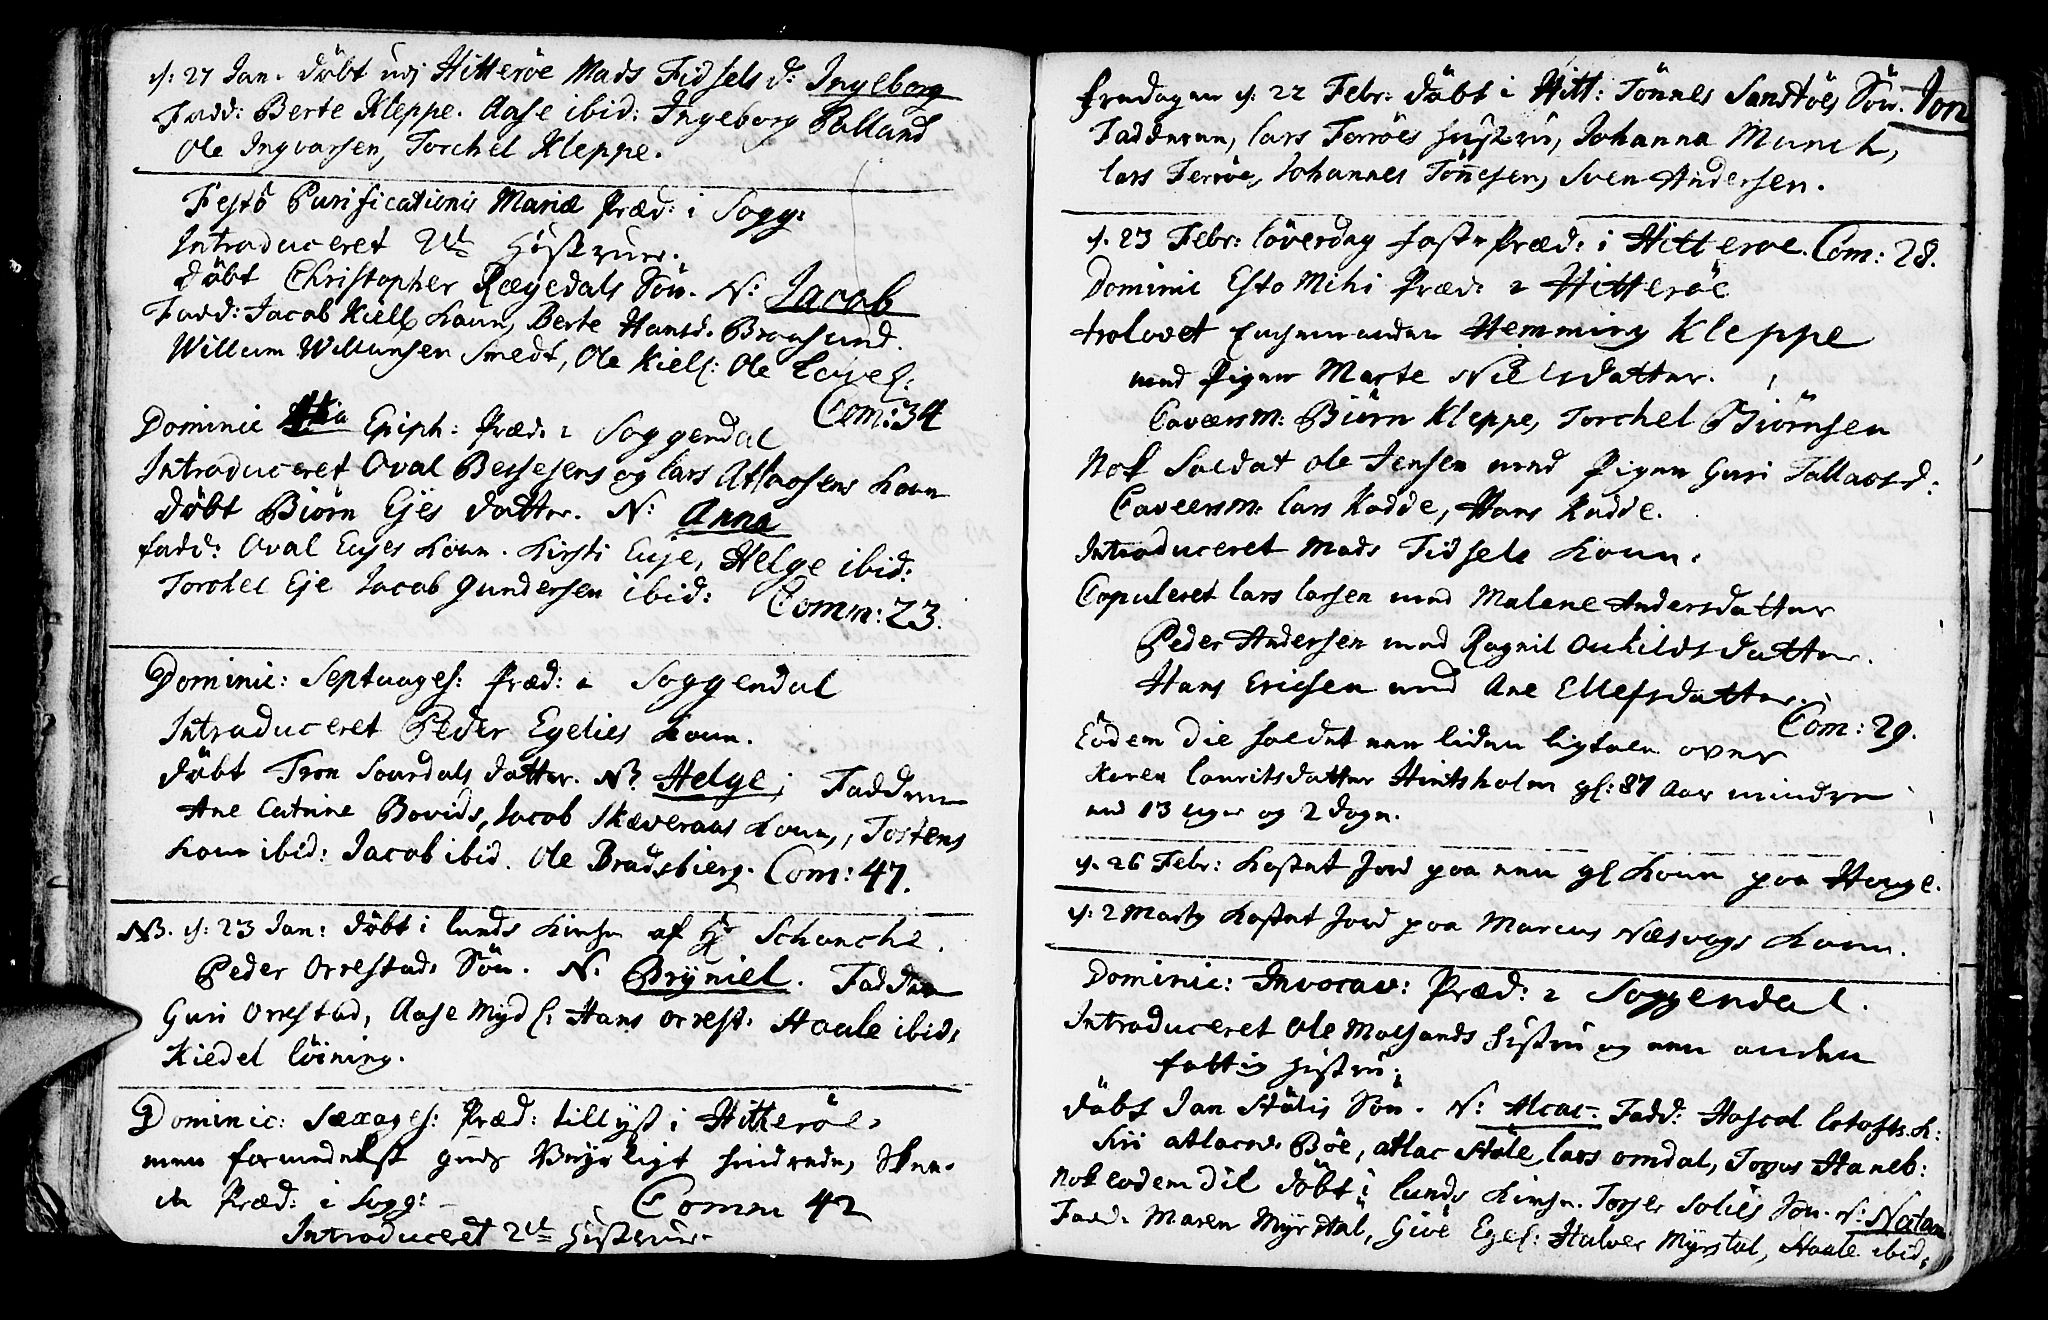 d: 27 Jan. döbt udj Hitteröe Mads Fidsels d: Ingeborg
Fadd: Berte Kleppe. Aase ibid: Ingeborg Palland
Ole Ingvarsen, Torchel Kleppe.
Festo Purificationis Mariæ Præd: i Sogg:
Introduceret 2de Hustruer.
döbt Christopher Rægedals Sön. N: Jacob
Fadd: Jacob Kiels Koun, Berte Hansd. Broesund.
Willum Willumsen Smedt, Ole Kiels: Ole
Com: 34
Dominic 4ta Epiph: Præd: i Soggendal
Introduceret Oval Bessesens og Lars Atlaosens Koun
döbt Biörn Ejes datter. N: Anna
fadd: Oval Eyes Koun. Kirsti Eye, Helge ibid:
Torchel Eje Jacob Gundersen ibid: Comm: 23.
Dominic: Septuages: Præd: i Soggendal
Introduceret Peder Egelies Koun.
döbt Tron Sourdals datter. N: Helge; Faddrene
Ane Catrine Bovids, Jacob Skæveraas Koun, Tostens
Koun ibid: Jacob ibid. Ole Bradsbierg. Com: 47.
NB. d: 23 Jan: döbt i Lunds Kirche af Hr Schanche.
Peder Orrestads Sön. N. Bryniel. Faddere
Guri Orrestad, Aase Myds: Hans Orrest. Staale ibid:
Kiedel Löining.
Dominic: Sexages: Præd: tillyst i Hitteröe
men formedelst Guds Veyrligt hindrede, Skee-
de Præd: i Sogg: Comm 42
Introduceret 2de Hustruer.
fredagen d: 22 Febr: döbt i Hitt: Tönnes Sandtöes Sön. Jon
Fadderne, Lars Ferröes Hustru, Johanna Munch,
Lars Ferröe, Johannes Tönnesen, Sven Andersen.
d. 23 Febr: Löverdag Præd: i Hitteröe. Com: 28.
Dominic Esto Mihi Præd: i Hitteröe
trolovet Hemming Kleppe
med Pigen Marte Nielsdatter.
Caveerm: Biörn Kleppe, Torchel Biörnsen
Nok Soldat Ole Jensen med Pigen Guri Tallacsd:
Caveersm: Lars Kadde, Hans Kadde.
Introduceret Mads Fidsels Koun.
Copuleret Lars Larsen med Malene Andersdatter
Peder Andersen med Ragnil Ouhildsdatter.
Hans Ericsen med Ane Ellefsdatter.
Com: 29.
Eodem die holdet een liden ligtale over
Karen Lauritsdatter Hintsholm gl: 87 Aar mindre
end 13 uger og 2 dage.
d. 26 Febr: Kastet Jord paa een gl Koun paa Houge.
d: 2 Marty Kastet Jord paa Marcus Næsvogs Koun.
Dominic: Invocav: Præd: i Soggendal.
Introduceret Ole Molsands Hustru og een anden
fattig Hustru.
döbt Jan Stölis Sön. N: Fadd: K:
Siri Atlacsd: Böe, Atlac Stöle, Lars Omdal, Haneb:
Nok eodem die döbt i Lunds Kirche. Torger Solies Sön. N: Natan
Fadd: Maren Myrstal, Give Eges: Halver Myrstal, Staale ibid: